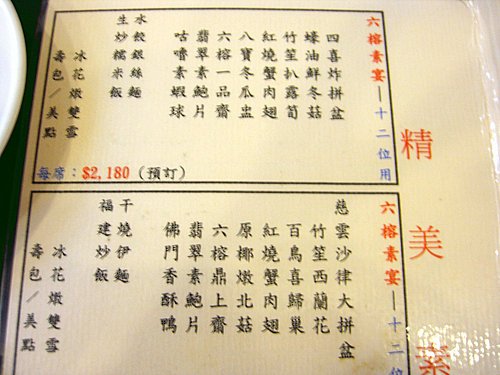 精美素
六榕素宴—十二位用
四喜炸拼盆
蠔油鮮冬菇
竹笙扒露筍
紅燒蟹肉翅
八寶冬瓜盅
六榕一品齋
翡翠素鮑片
咕嚕素蝦球
水餃銀絲麵
生炒糯米飯
冰花燉雙雪
壽包／美點
每席：$2,180（預訂）
六榕素宴—十二位
慈雲沙律大拼盆
竹笙西蘭花
百鳥喜歸巢
紅燒蟹肉翅
原椰燉北菇
六榕鼎上齋
翡翠素鮑片
佛門香酥鴨
干燒伊麵
福建炒飯
冰花燉雙雪
壽包／美點